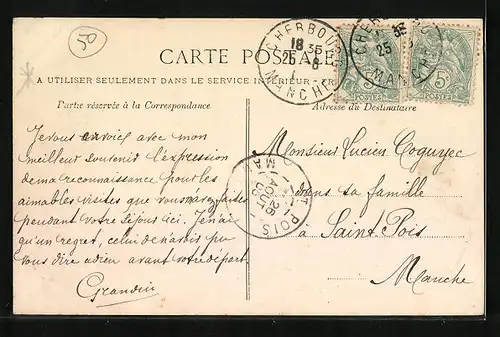 50
CARTE POSTALE
A UTILISER SEULEMENT DANS LE SERVICE INTÉRIEUR
Partie réservée à la Correspondance
Adresse du Destinataire
CHERBOURG
18 35
25 8
MANCHE
CHERBOURG
35
25
MANCHE
5c
POSTES
Je vous envoie avec mon
meilleur souvenir l'expression
de ma reconnaissance pour les
aimables visites que vous m'avez faites
pendant votre séjour ici. Je n'ai
qu'un regret, celui de n'avoir pu
vous dire adieu avant votre départ
Grandin
ST POIS
26
AOUT
Monsieur Lucien Coguyec
dans sa famille
à Saint Pois
Manche